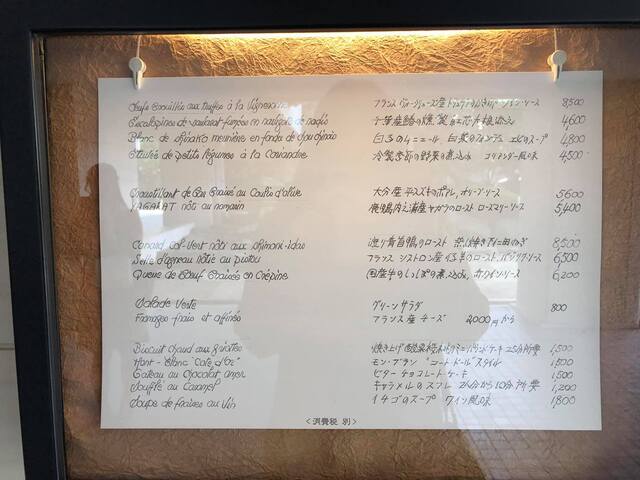 Oeufs Brouillés aux truffes à la Vigneronne フランス ヴォークリューズ産トリュフ ワイン・ソース 8,500
Escalopines de saumon fumées en 千葉産 4,600
Blanc de Shirako meunière en fondu de chou chinois 白子のムニエール 白菜のフォンデュ エビのスープ 4,800
Etuvée de petits légumes à la Coriandre 冷製季節の野菜の煮込み コリアンダー風味 4,500
Croustillant de Bar Braisé au Coulis d'olive 大分産 スズキのポアレ, オリーブ・ソース 5,600
YAGARAT rôti au romarin ヤガラのロースト ローズマリーソース 5,400
Canard Col-Vert rôti aux shimoni-idas 青首鴨のロースト 下仁田ねぎ 8,500
Selle d'agneau rôtie au pistou フランス シストロン産 仔羊のロースト, バジリク・ソース 6,500
Queue de Boeuf Braisée en Crépine 国産牛のしっぽの煮込み, 赤ワインソース 6,200
Salade Verte グリーンサラダ 800
Fromages frais et affinés フランス産 チーズ 2,000円から
Biscuit chaud aux griottes 焼き上げ ケーキ 25分所要 1,500
Mont-Blanc "Cote d'Or" モン・ブラン "コートドール" スタイル 1,500
Gateau au Chocolat amer ビターチョコレートケーキ 1,500
Soufflé au Caramel キャラメルのスフレ 10分所要 1,200
Soupe de fraises au vin イチゴのスープ ワイン風味 1,800
<消費税 別>